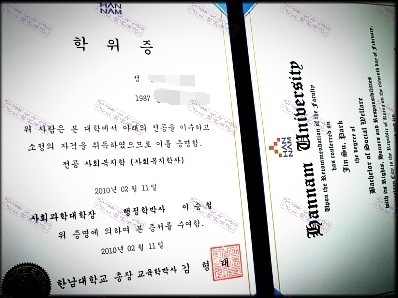 HAN
NAM
학 위 증
성
1987
위 사람은 본 대학에서 아래의 전공을 이수하고
소정의 자격을 취득하였으므로 이를 증명함.
전공 사회복지학 (사회복지학사)
2010년 02월 11일
사회과학대학장 행정학박사 이
위 증명에 의하여 본 증서를 수여함.
2010년 02월 11일
한남대학교 총장 교육학박사 김 형 태
HAN
NAM
Hannam University
Upon the Recommendation of the Faculty
has conferred on
Jin Su, Park
the degree of
Bachelor of Social Welfare
with its Rights, Honors and Responsibilities